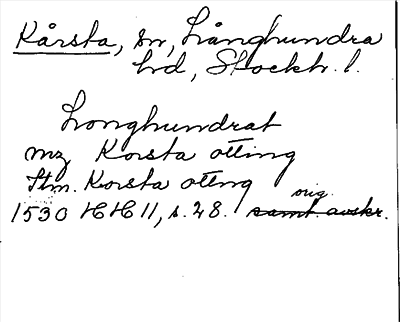 Kårsta, sn, Långhundra
hd, Stockh. l.
Longhundrat
mz Korsta otting
Itm. Korsta ottng
orig.
1530 HH 11, s. 28. samt avskr.